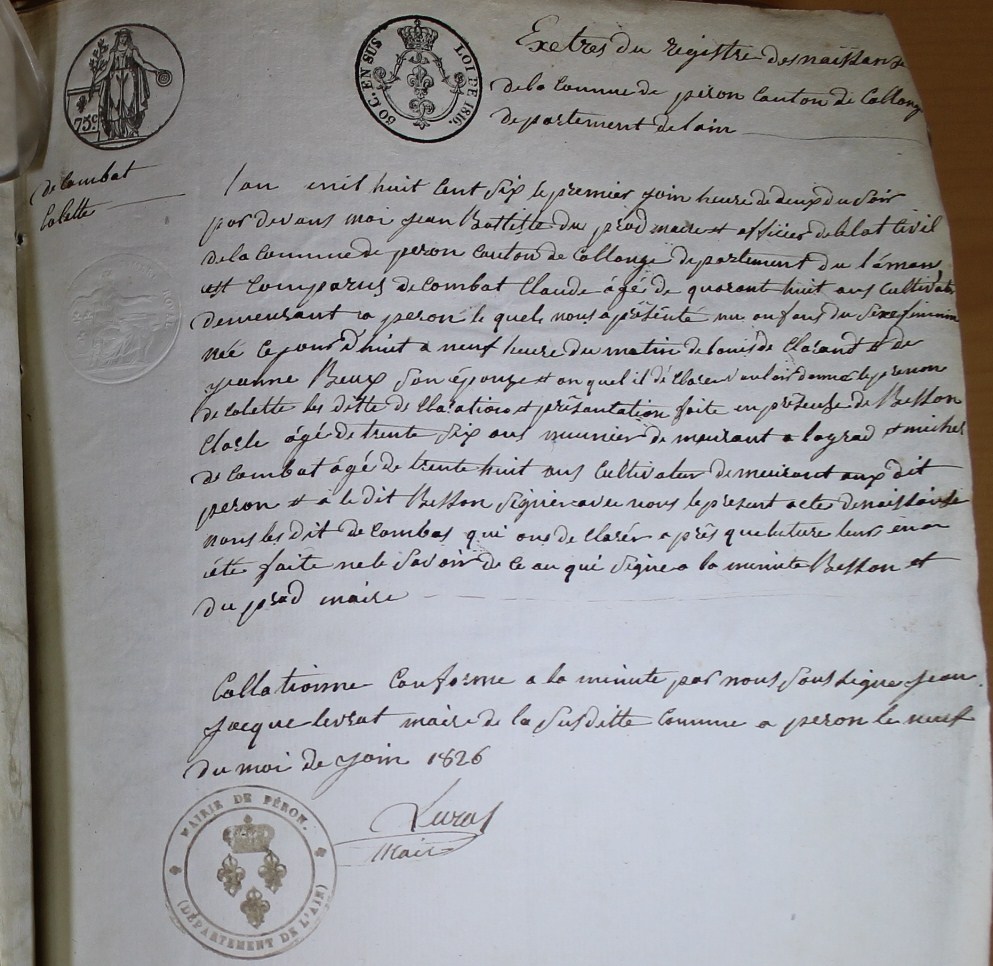 75 c
50 C. EN SUS
LOI DE 1816.
Exetres du registre des naissanse
de la Commue de péron Canton de Collonge
departement de lain
de Combat
Colette
lan mil huit Cent Six le premier join heure de deux du soir
par devans moi jean Battiste du prad maire et officier de letat Civil
de la Commue de peron Canton de Collonge departement du léman,
est Comparus de Combat Claude âgé de quarant huit ans Cultivater
demeurant a peron le quels nous a présénté un enfans du Sexe feminin
née ce jour d'huit a neuf heure du matin de louis de Clarand et de
jeanne Beux son épouze et au quel il dé Clarer vouloir donner le prenon
de Colette les ditte de Claration et présantation faite en présense de Besson
Clacle âgé de trente Six ans meunier de meurant a logrod et michel
de Combat âgé de trente huit ans Cultivateur demeurant aux dit
peron et a le dit Besson Signer avec nous le présent acte de naissanse
nons les dit de Combas qui ons de Clarér a prês que luture leurs en a
été faite ne le Savoir de Ce au qui Signe a la minute Besson et
du prad maire
Collationne Conforme a la minute par nous Sous Signe jean
jacque levrat maire de la Susditte Commue a peron le neuf
du moi de join 1826
Levrat
Maire
MAIRIE DE PÉRON.
(DÉPARTEMENT DE L'AIN)